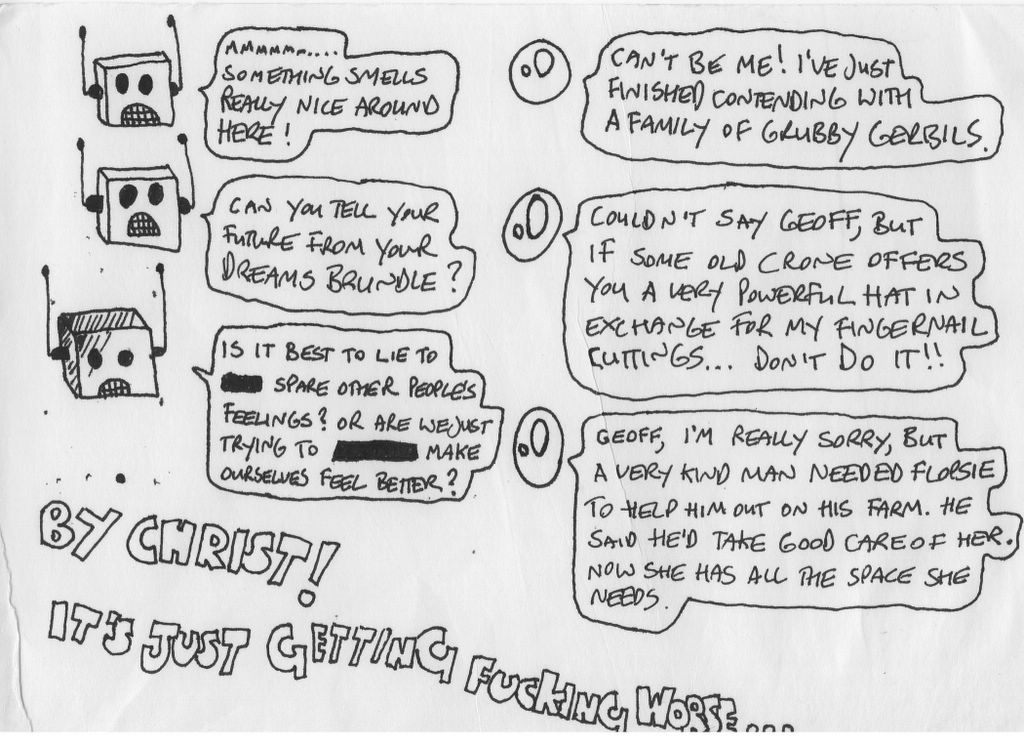 MMMMMM....
SOMETHING SMELLS
REALLY NICE AROUND
HERE!
CAN'T BE ME! I'VE JUST
FINISHED CONTENDING WITH
A FAMILY OF GRUBBY GERBILS.
CAN YOU TELL YOUR
FUTURE FROM YOUR
DREAMS BRUNDLE?
COULDN'T SAY GEOFF, BUT
IF SOME OLD CRONE OFFERS
YOU A VERY POWERFUL HAT IN
EXCHANGE FOR MY FINGERNAIL
CUTTINGS... DON'T DO IT!!
IS IT BEST TO LIE TO
SPARE OTHER PEOPLE'S
FEELINGS? OR ARE WE JUST
TRYING TO MAKE
OURSELVES FEEL BETTER?
GEOFF, I'M REALLY SORRY, BUT
A VERY KIND MAN NEEDED FLOPSIE
TO HELP HIM OUT ON HIS FARM. HE
SAID HE'D TAKE GOOD CARE OF HER.
NOW SHE HAS ALL THE SPACE SHE
NEEDS.
BY CHRIST!
IT'S JUST GETTING FUCKING WORSE...